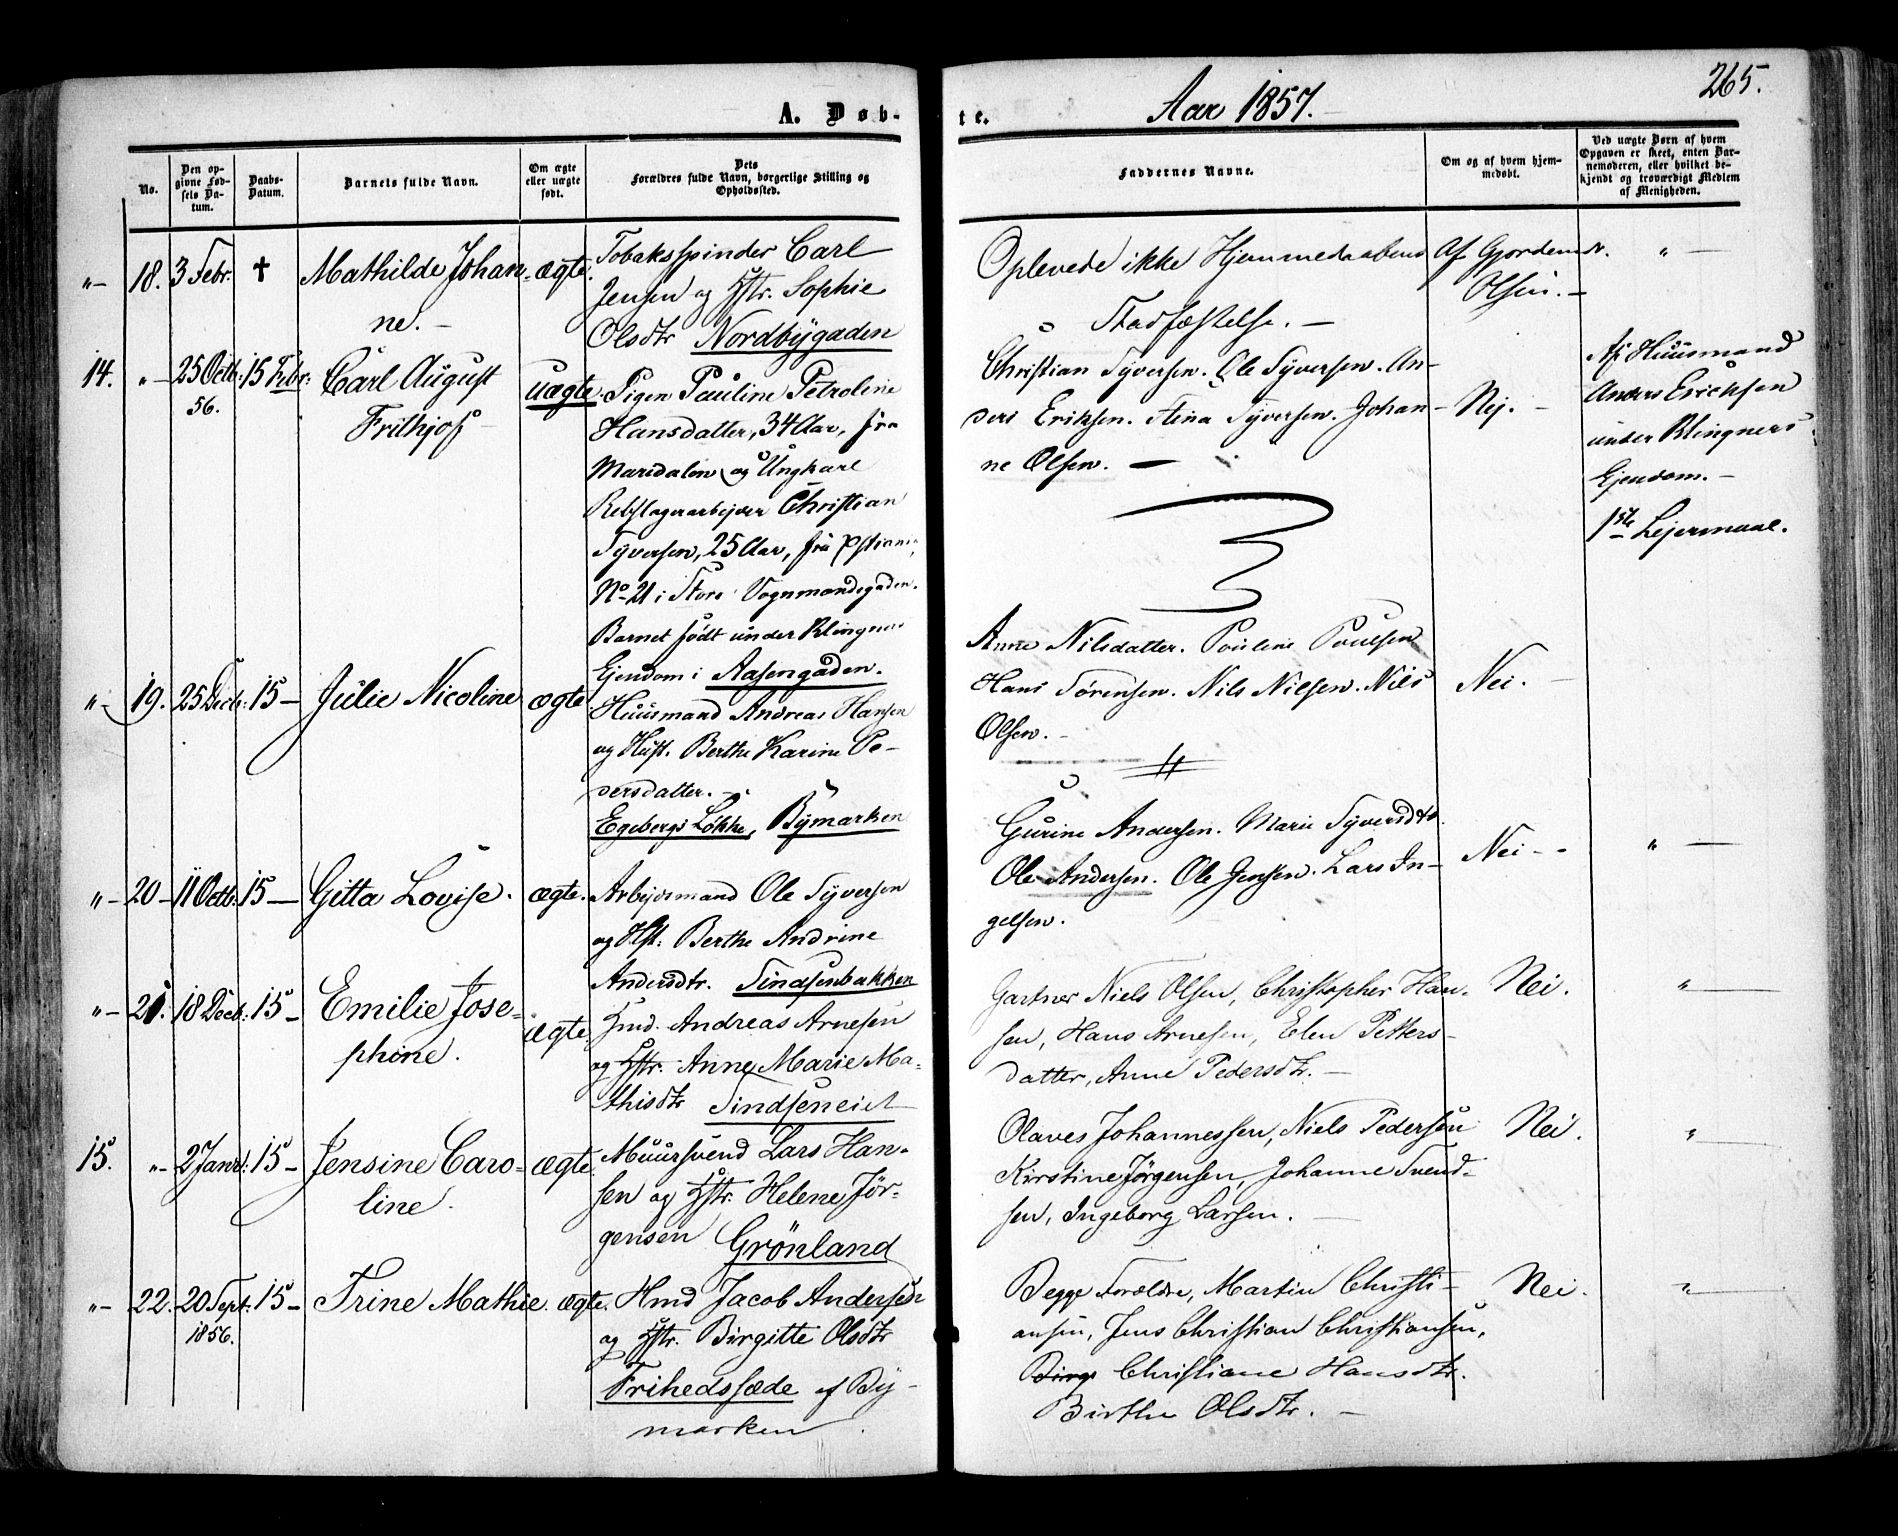 A. Døb-
te.
Aar 1857.
265.
No.
Den op-
givne Fød-
sels Da-
tum.
Daabs-
Datum.
Barnets fulde Navn.
Om ægte
eller uægte
født.
Dets
Forældres fulde Navn, borgerlige Stilling og
Opholdssted.
Faddernes Navne.
Om og af hvem hjem-
medøbt.
Ved uægte Børn af hvem
Opgaven er skeet, enten Bar-
nemoderen, eller hvilket be-
kjendt og troværdigt Medlem
af Menigheden.
"– 18. 3 Febr. † Mathilde Johan- ægte. Tobaksspinder Carl
Jensen og Hstr. Sophie
ne. –
Olsdtr Nordbygaden
Oplevede ikke Hjemmedaabens
Stadfæstelse. –
Af Gjordem.
Olsen. –
" –
14. "– 25 Octb: 15 Febr: Carl August uægte. Pigen Pauline Petroline
56.
Frithjof –
Hansdatter, 34 Aar, fra
Maridalen og Ungkarl
Rebslagerarbejder Christian
Syversen, 25 Aar, fra Xstiania,
No 21 i Store Vognmandsgaden.
Barnet født under Klingners
Ejendom i Aasengaden.
Christian Syversen. Ole Syversen. An-
ders Eriksen. Stina Syversen. Johan-
ne Olsen. –
Nej. –
Af Huusmand
Anders Ericksen
under Klingners
Ejendom. –
1ste Lejermaal.
"– 19. 25 Decb: 15 – Julie Nicoline ægte. Huusmand Andreas Hansen
og Hust. Berthe Karine Pe-
dersdatter. –
Egebergs Løkke, Bymarken
Anne Nilsdatter. Pouline Poulsen
Hans Sørensen. Nils Nilsen. Nils
Olsen. –
Nei. –
"– 20 – 11 Octb: 15 – Gitta Lovise. ægte. Arbejdsmand Ole Syversen
og Hst: Berthe Andrine
Andersdtr. Sindsenbakken
Gurine Andersen. Marie Syversdtr.
Ole Andersen. Ole Jensen. Lars In-
gelsen.
Nei – -
" –
"– 21. 18 Decb: 15 – Emilie Jose- ægte. Hmd. Andreas Arnesen
phine.
og Hstr. Anne Marie Ma-
thisdtr Sindseneiet
Gartner Niels Olsen, Christopher Han-
sen, Hans Arnesen, Elen Petters-
datter, Anne Pedersdtr. –
Nei.
" –
15. "– 2 Janr: 15 – Jensine Caro- ægte. Muursvend Lars Han-
line.
sen og Hstr. Helene Jør-
gensen Grönland
Olaves Johannessen, Niels Pedersen
Kirstine Jørgensen, Johanne Svend-
sen, Ingeborg Larsen. –
Nei.
" –
"– 22. 20 Sept: 15 – Trine Mathie. ægte. Hmd Jacob Andersen
1856.
og Hstr. Birgitte Olsdtr
Frihedssæde af By-
marken.
Begge Forældre, Martin Christi-
ansen, Jens Christian Christiansen,
Birgi Christiane Hansdtr.
Birthe Olsdtr. –
Nei.
" –